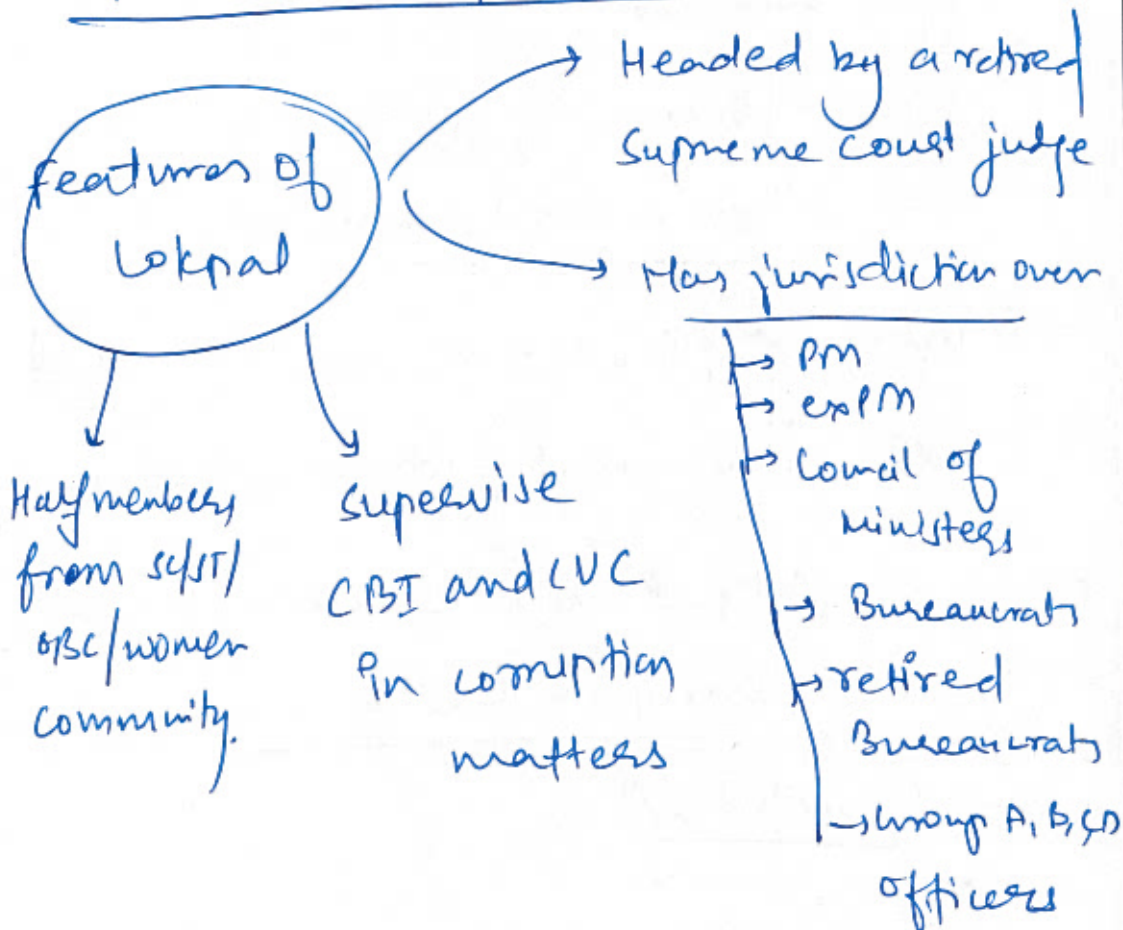 Features of
Lokpal
Headed by a retired
Supreme Court judge
Has jurisdiction over
PM
ex PM
Council of
Ministers
Bureaucrats
retired
Bureaucrats
Group A, B, C, D
officers
Half members
from SC/ST/
OBC/women
community.
Supervise
CBI and CVC
in corruption
matters